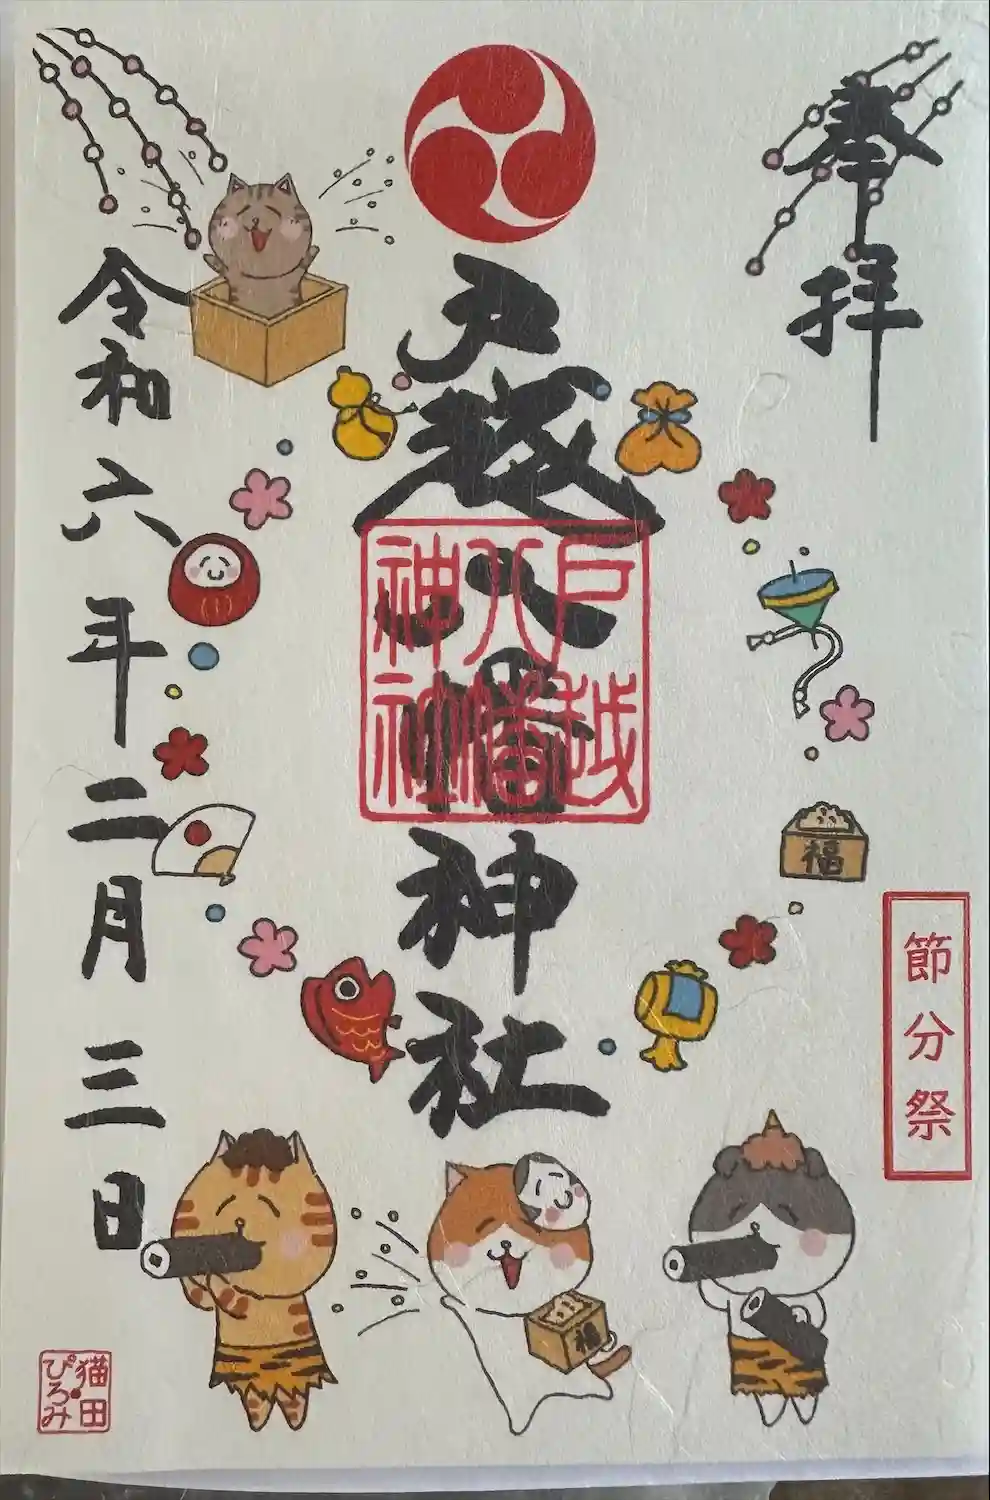 奉拝
戸越八幡神社
戸越
八幡
神社
令和六年二月三日
福
節分祭
福
猫田
ぴろみ